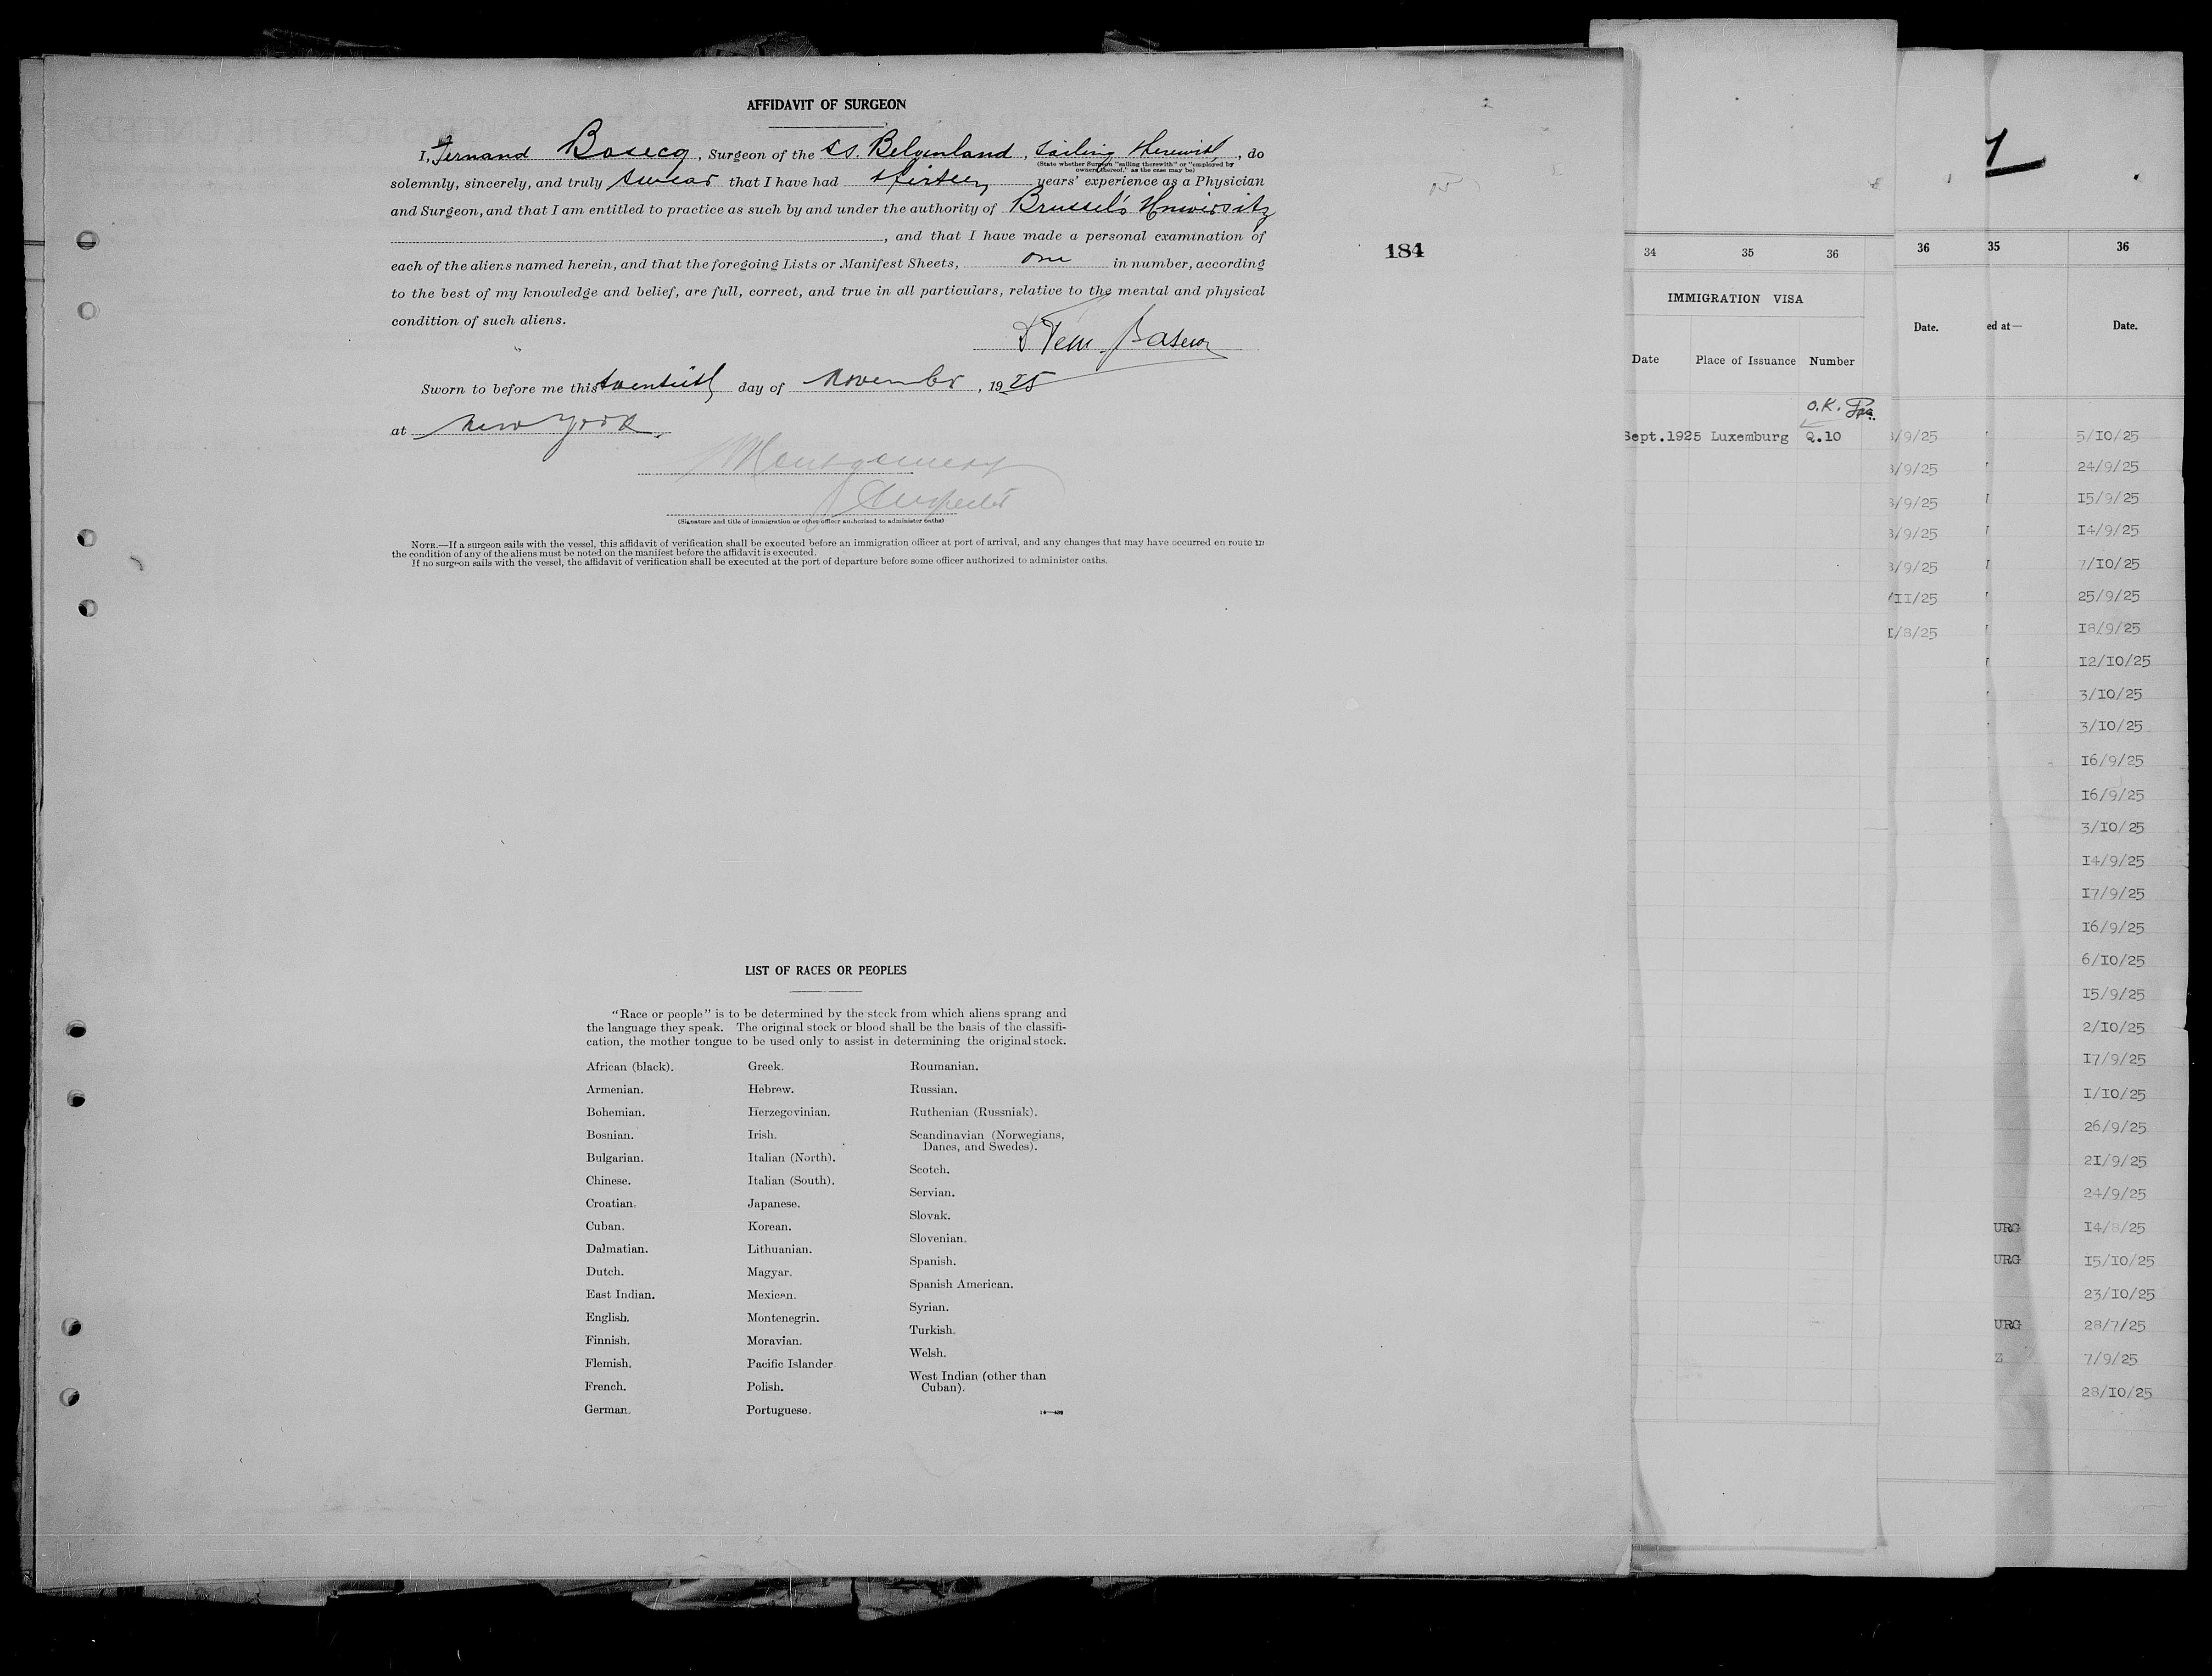 AFFIDAVIT OF SURGEON
I, Fernand Bosecq, Surgeon of the SS. Belgenland, Sailing Therewith, do
(State whether Surgeon "sailing therewith" or "employed by
owners thereof," as the case may be)
solemnly, sincerely, and truly swear that I have had thirteen years' experience as a Physician
and Surgeon, and that I am entitled to practice as such by and under the authority of Brussel's University
, and that I have made a personal examination of
each of the aliens named herein, and that the foregoing Lists or Manifest Sheets, one in number, according
to the best of my knowledge and belief, are full, correct, and true in all particulars, relative to the mental and physical
condition of such aliens.
Sworn to before me this twentieth day of November, 1925
at New York.
Montgomery
Inspector
(Signature and title of immigration or other officer authorized to administer oaths)
NOTE.—If a surgeon sails with the vessel, this affidavit of verification shall be executed before an immigration officer at port of arrival, and any changes that may have occurred en route in
the condition of any of the aliens must be noted on the manifest before the affidavit is executed.
If no surgeon sails with the vessel, the affidavit of verification shall be executed at the port of departure before some officer authorized to administer oaths.
184
LIST OF RACES OR PEOPLES
"Race or people" is to be determined by the stock from which aliens sprang and
the language they speak. The original stock or blood shall be the basis of the classifi-
cation, the mother tongue to be used only to assist in determining the original stock.
African (black).
Armenian.
Bohemian.
Bosnian.
Bulgarian.
Chinese.
Croatian.
Cuban.
Dalmatian.
Dutch.
East Indian.
English.
Finnish.
Flemish.
French.
German.
Greek.
Hebrew.
Herzegovinian.
Irish.
Italian (North).
Italian (South).
Japanese.
Korean.
Lithuanian.
Magyar.
Mexican.
Montenegrin.
Moravian.
Pacific Islander
Polish.
Portuguese.
Roumanian.
Russian.
Ruthenian (Russniak).
Scandinavian (Norwegians,
Danes, and Swedes).
Scotch.
Servian.
Slovak.
Slovenian.
Spanish.
Spanish American.
Syrian.
Turkish.
Welsh.
West Indian (other than
Cuban).
34 35 36
IMMIGRATION VISA
Date Place of Issuance Number
O.K.
Sept.1925 Luxemburg Q.10
36
Date.
/9/25
/9/25
/9/25
/9/25
/9/25
/II/25
I/8/25
35 36
ed at— Date.
5/IO/25
24/9/25
I5/9/25
I4/9/25
7/IO/25
25/9/25
I8/9/25
I2/IO/25
3/IO/25
3/IO/25
I6/9/25
I6/9/25
3/IO/25
I4/9/25
I7/9/25
I6/9/25
6/IO/25
I5/9/25
2/IO/25
I7/9/25
I/IO/25
26/9/25
2I/9/25
24/9/25
URG I4/8/25
URG I5/IO/25
23/IO/25
URG 28/7/25
Z 7/9/25
28/IO/25